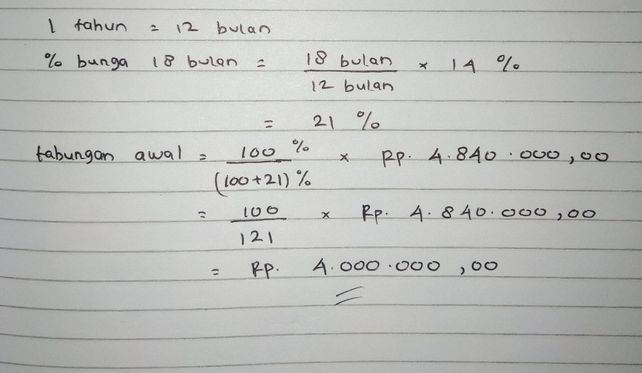 1 tahun = 12 bulan
% bunga 18 bulan = 18 bulan / 12 bulan × 14 %
= 21 %
tabungan awal = 100 % / (100+21) % × Rp. 4.840.000,00
= 100 / 121 × Rp. 4.840.000,00
= Rp. 4.000.000,00